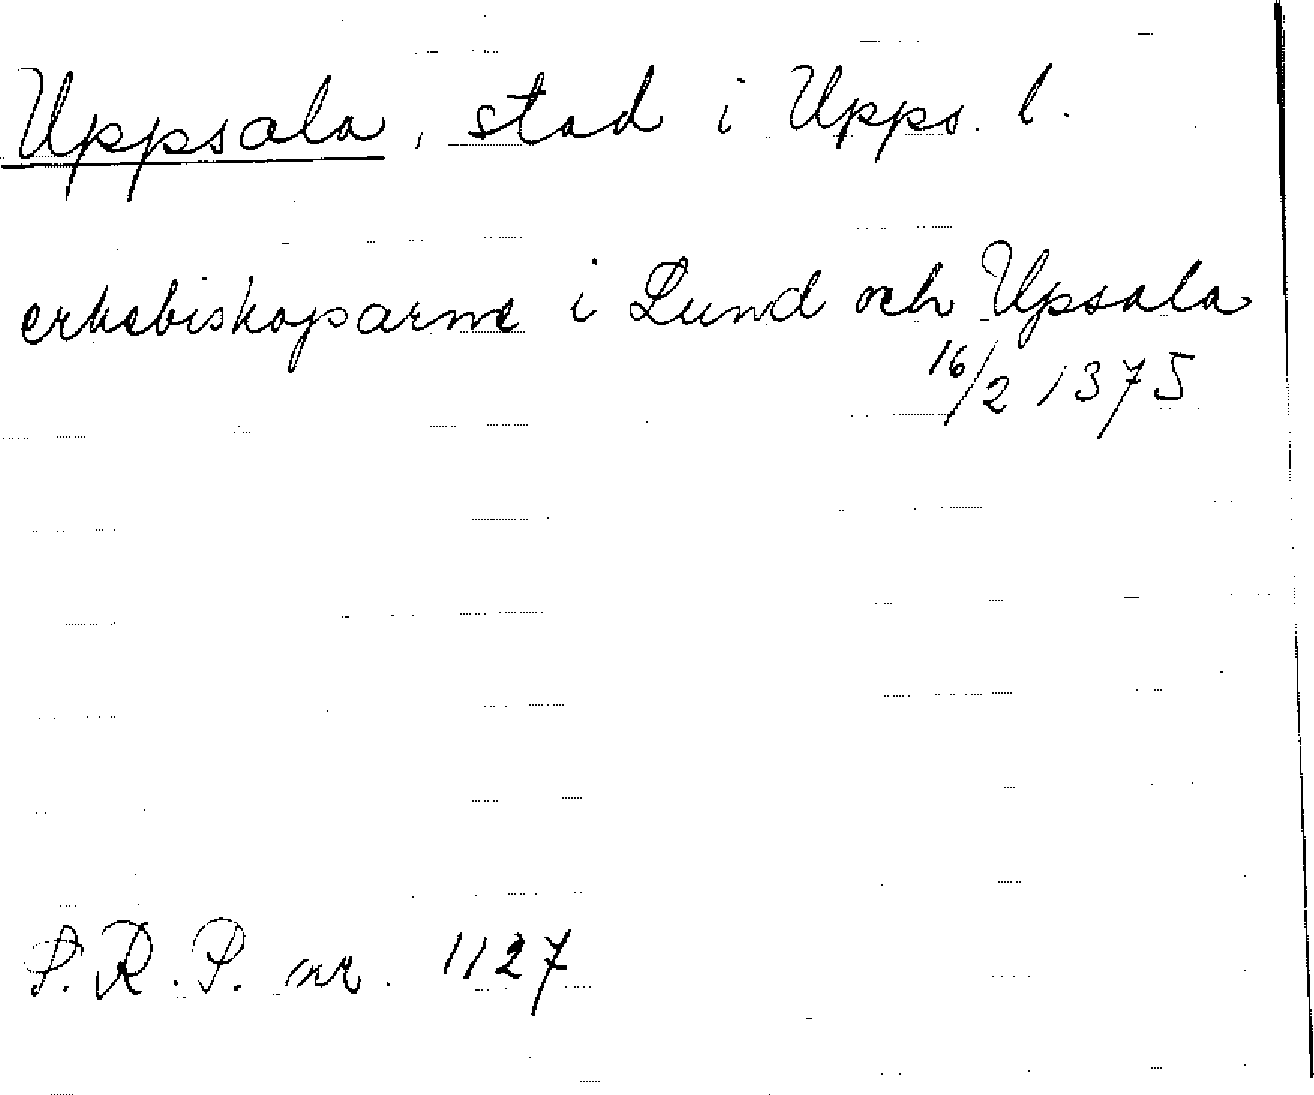 Uppsala, stad i Upps. l.
erkebiskoparne i Lund och Upsala
16/2 1375
S.R.P. nr. 1127